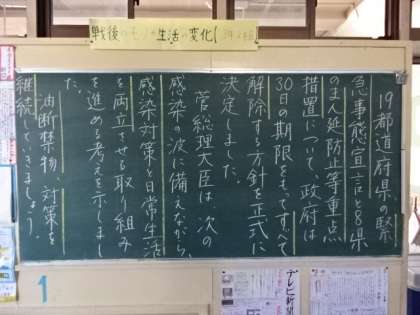 戦後の
生活の変化
19都道府県の緊
急事態宣言と8県
のまん延防止等重点
措置について、政府は
30日の期限をもってすべて
解除する方針を正式に
決定しました。
菅総理大臣は、次の
感染の波に備えながら、
感染対策と日常生活
を両立させる取り組み
を進める考えを示しまし
た。
油断禁物、対策を
継続していきましょう。
1
テレビ新聞